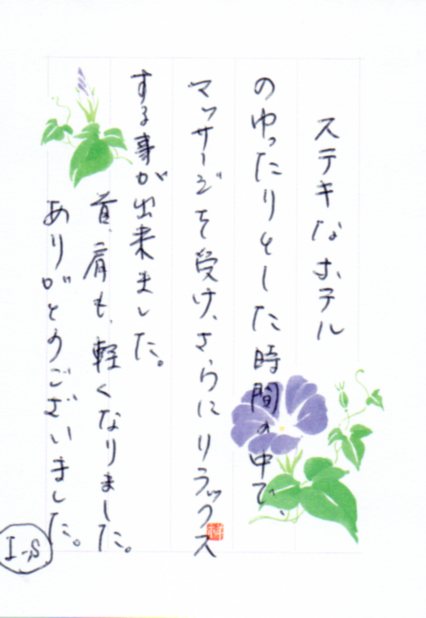 ステキなホテル
のゆったりとした時間の中で、
マッサージを受け、さらにリラックス
する事が出来ました。
首、肩も、軽くなりました。
ありがとうございました。
I-S